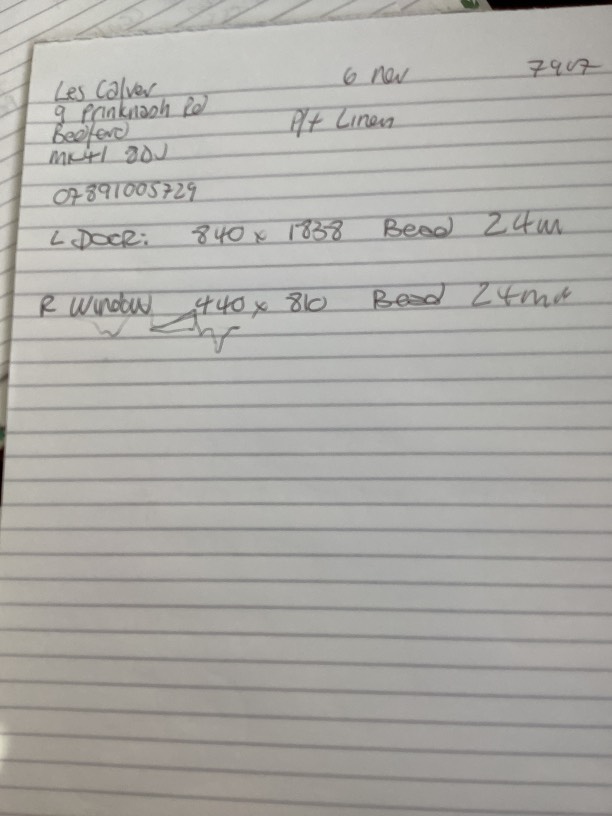 Les Calver 6 Nov 7907
9 Prinknash Rd
Bedford P/t Linen
MK41 8DJ
07891005729
L DOOR: 840 x 1838 Bead 24m
R Window 440 x 810 Bead 24mm